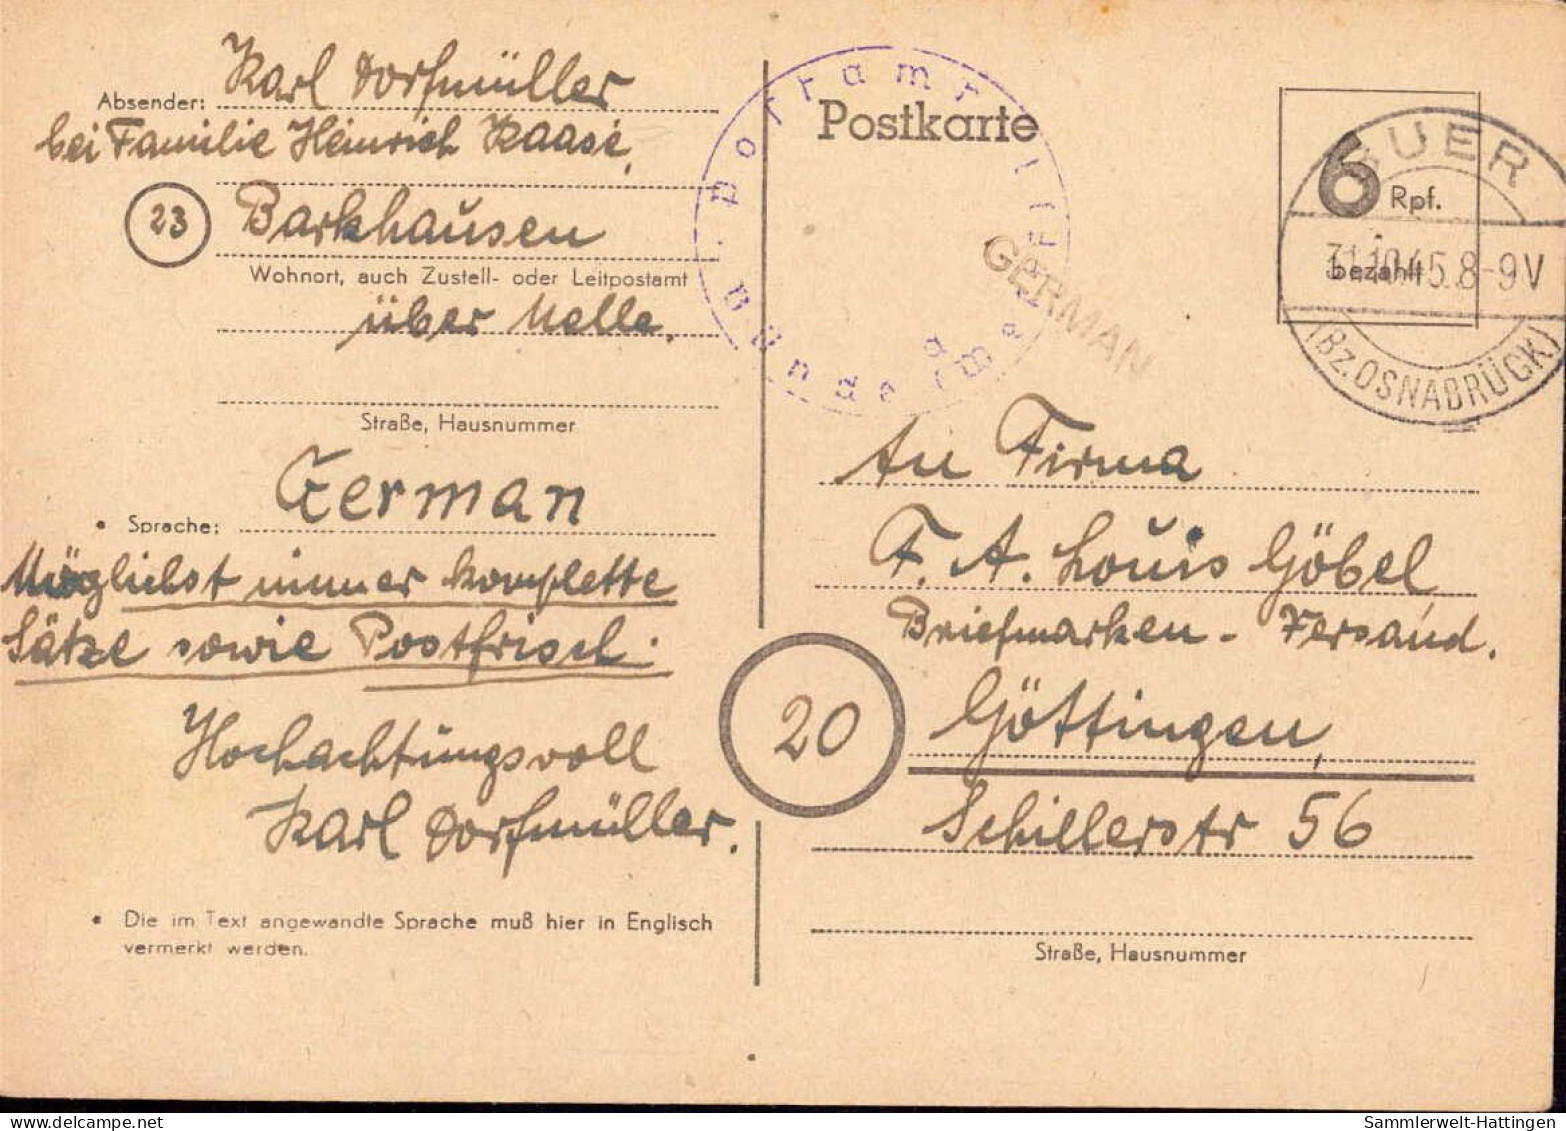 Karl Dorfmüller
Absender:
bei Familie Heinrich Kaase,
23 Barkhausen
Wohnort, auch Zustell- oder Leitpostamt
über Melle.
Straße, Hausnummer
German
• Sprache:
Möglichst immer komplette
Sätze sowie Postfrisch.
Hochachtungsvoll
Karl Dorfmüller.
• Die im Text angewandte Sprache muß hier in Englisch
vermerkt werden.
Postkarte
Bünde
GERMAN
6 Rpf.
bezahlt
BUER
31.10.45.8-9V
(Bz.OSNABRÜCK)
An Firma
F. A. Louis Göbel,
Briefmarken-Versand.
20 Göttingen,
Schillerstr 56
Straße, Hausnummer
Sammlerwelt-Hattingen